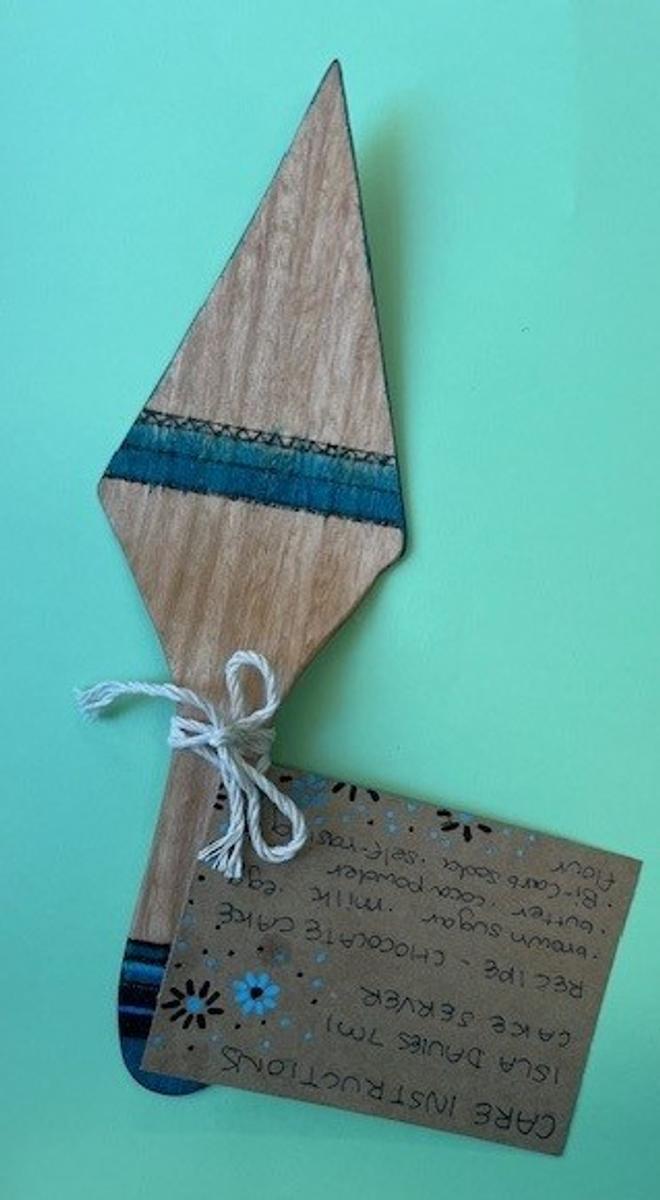 CARE INSTRUCTIONS
ISLA DAVIES 7M1
CAKE SERVER
RECIPE - CHOCOLATE CAKE
• brown sugar • milk • egg
• butter • coca powder
• Bi-carb soda • self-rasing
flour